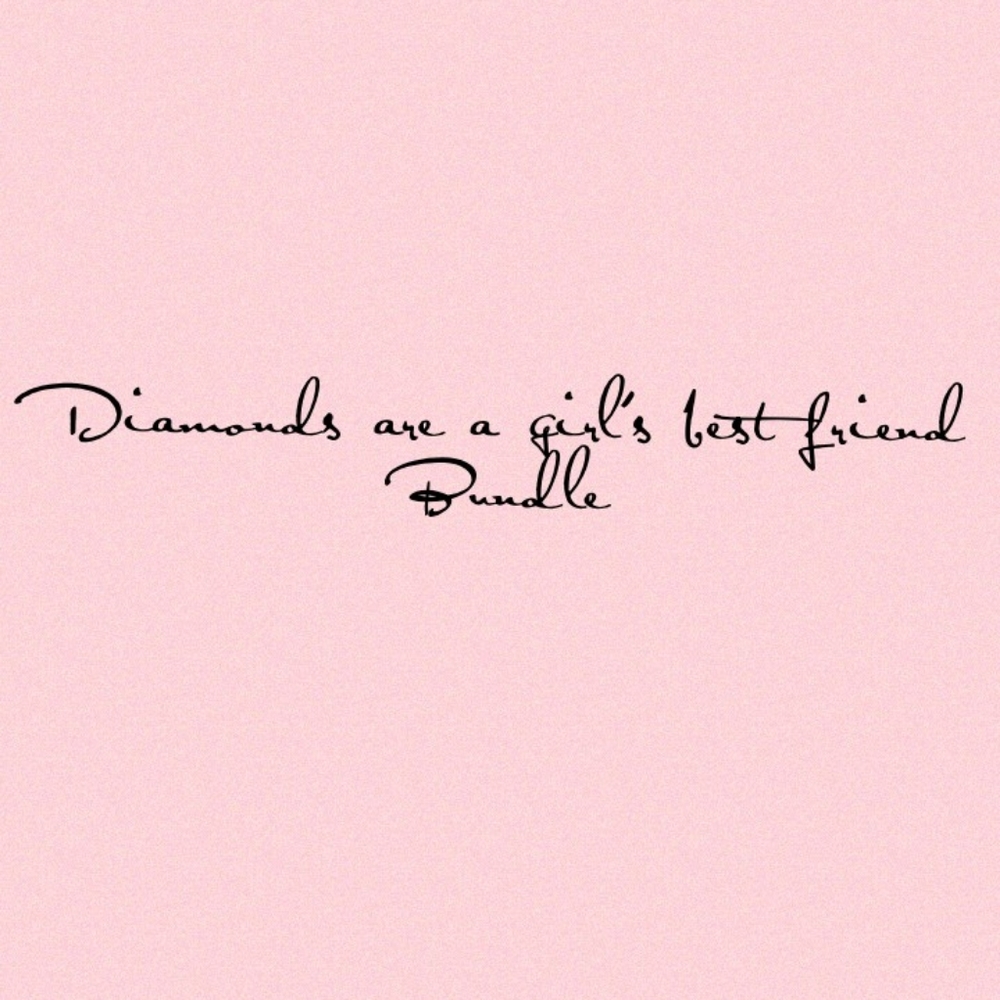 Diamonds are a girl's best friend
Bundle